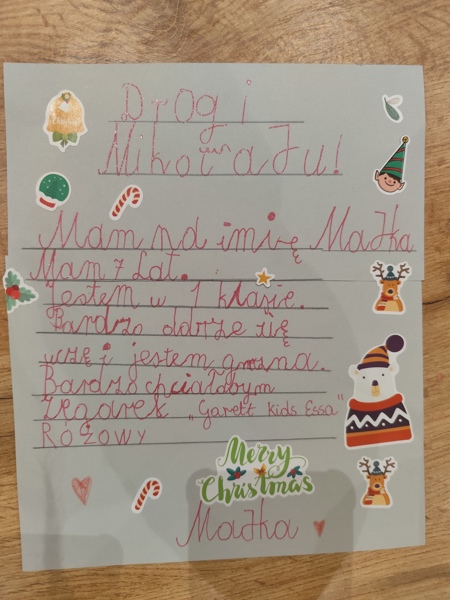 Drogi
Mikołaju!
Mam na imię Majka
Mam 7 lat.
Jestem w 1 klasie.
Bardzo dobrze się
uczę i jestem
Bardzo chciałabym
Zegarek „Garett kids Essa"
Różowy
Merry
Christmas
Majka